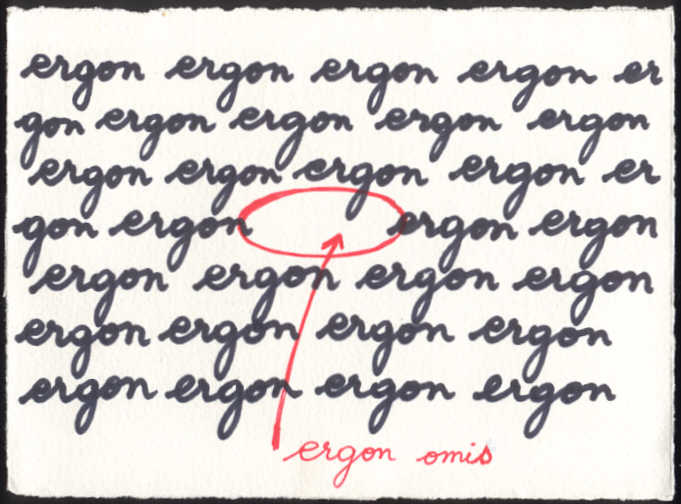 ergon ergon ergon ergon er
gon ergon ergon ergon ergon
ergon ergon ergon ergon er
gon ergon ergon ergon
ergon ergon ergon ergon
ergon ergon ergon ergon
ergon ergon ergon ergon
ergon omis